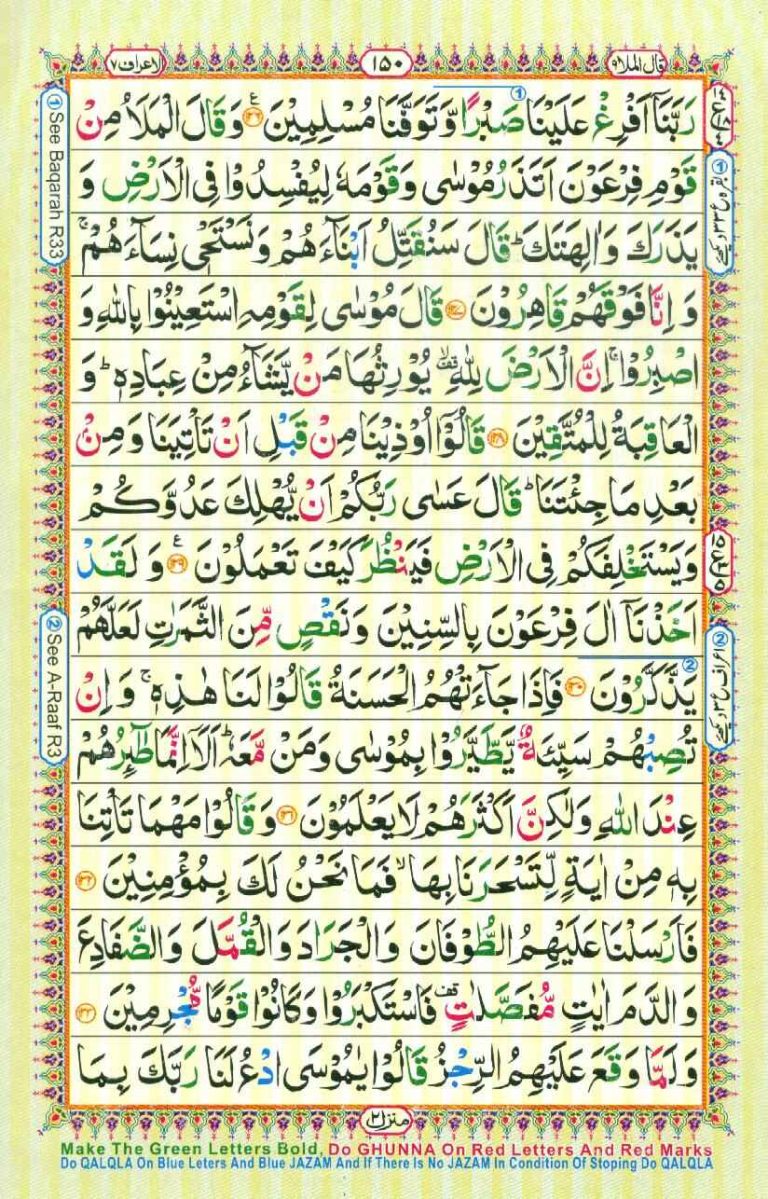 قال الملا ٩
١٥٠
الاعراف ٧
رَبَّنَآ اَفْرِغْ عَلَيْنَا صَبْرًا وَّ تَوَفَّنَا مُسْلِمِيْنَ ﴿١٢٦﴾ وَ قَالَ الْمَلَاُ مِنْ
قَوْمِ فِرْعَوْنَ اَتَذَرُ مُوْسٰى وَ قَوْمَهٗ لِيُفْسِدُوْا فِى الْاَرْضِ وَ
يَذَرَكَ وَ اٰلِهَتَكَ ؕ قَالَ سَنُقَتِّلُ اَبْنَآءَهُمْ وَ نَسْتَحْىٖ نِسَآءَهُمْ ۚ
وَ اِنَّا فَوْقَهُمْ قَاهِرُوْنَ ﴿١٢٧﴾ قَالَ مُوْسٰى لِقَوْمِهِ اسْتَعِيْنُوْا بِاللّٰهِ وَ
اصْبِرُوْا ۚ اِنَّ الْاَرْضَ لِلّٰهِ ۙ قف يُوْرِثُهَا مَنْ يَّشَآءُ مِنْ عِبَادِهٖ ؕ وَ
الْعَاقِبَةُ لِلْمُتَّقِيْنَ ﴿١٢٨﴾ قَالُوْٓا اُوْذِيْنَا مِنْ قَبْلِ اَنْ تَاْتِيَنَا وَ مِنْۢ
بَعْدِ مَا جِئْتَنَا ؕ قَالَ عَسٰى رَبُّكُمْ اَنْ يُّهْلِكَ عَدُوَّكُمْ
وَ يَسْتَخْلِفَكُمْ فِى الْاَرْضِ فَيَنْظُرَ كَيْفَ تَعْمَلُوْنَ ﴿١٢٩﴾ وَ لَقَدْ
اَخَذْنَآ اٰلَ فِرْعَوْنَ بِالسِّنِيْنَ وَ نَقْصٍ مِّنَ الثَّمَرٰتِ لَعَلَّهُمْ
يَذَّكَّرُوْنَ ﴿١٣٠﴾ فَاِذَا جَآءَتْهُمُ الْحَسَنَةُ قَالُوْا لَنَا هٰذِهٖ ۚ وَ اِنْ
تُصِبْهُمْ سَيِّئَةٌ يَّطَّيَّرُوْا بِمُوْسٰى وَ مَنْ مَّعَهٗ ؕ اَلَآ اِنَّمَا طٰٓئِرُهُمْ
عِنْدَ اللّٰهِ وَ لٰكِنَّ اَكْثَرَهُمْ لَا يَعْلَمُوْنَ ﴿١٣١﴾ وَ قَالُوْا مَهْمَا تَاْتِنَا
بِهٖ مِنْ اٰيَةٍ لِّتَسْحَرَنَا بِهَا ۙ فَمَا نَحْنُ لَكَ بِمُؤْمِنِيْنَ ﴿١٣٢﴾
فَاَرْسَلْنَا عَلَيْهِمُ الطُّوْفَانَ وَ الْجَرَادَ وَ الْقُمَّلَ وَ الضَّفَادِعَ
وَ الدَّمَ اٰيٰتٍ مُّفَصَّلٰتٍ قف فَاسْتَكْبَرُوْا وَ كَانُوْا قَوْمًا مُّجْرِمِيْنَ ﴿١٣٣﴾
وَ لَمَّا وَقَعَ عَلَيْهِمُ الرِّجْزُ قَالُوْا يٰمُوْسَى ادْعُ لَنَا رَبَّكَ بِمَا
منزل ٢
① See Baqarah R33
② See A-Raaf R3
Make The Green Letters Bold, Do GHUNNA On Red Letters And Red Marks
Do QALQLA On Blue Leters And Blue JAZAM And If There Is No JAZAM In Condition Of Stoping Do QALQLA